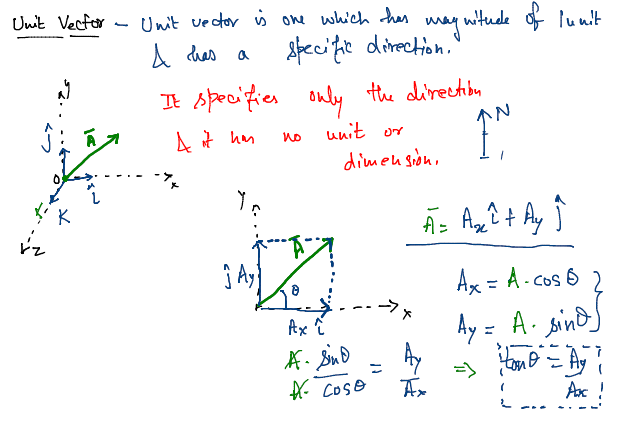 Unit Vector – Unit vector is one which has magnitude of 1 unit
& has a specific direction.
It specifies only the direction
& it has no unit or
dimension.
N
y
ĵ
Ā
O
î
x
K
z
Y
ĵ Ay
Ā
θ
x
Ax î
Ā = Ax î + Ay ĵ
Ax = A · cos θ
Ay = A · sin θ
A · sinθ / A · cosθ = Ay / Ax => tanθ = Ay / Ax